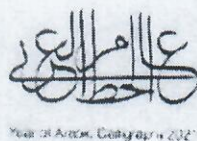 عام الخط العربي
Year of Arabic Calligraphy 202